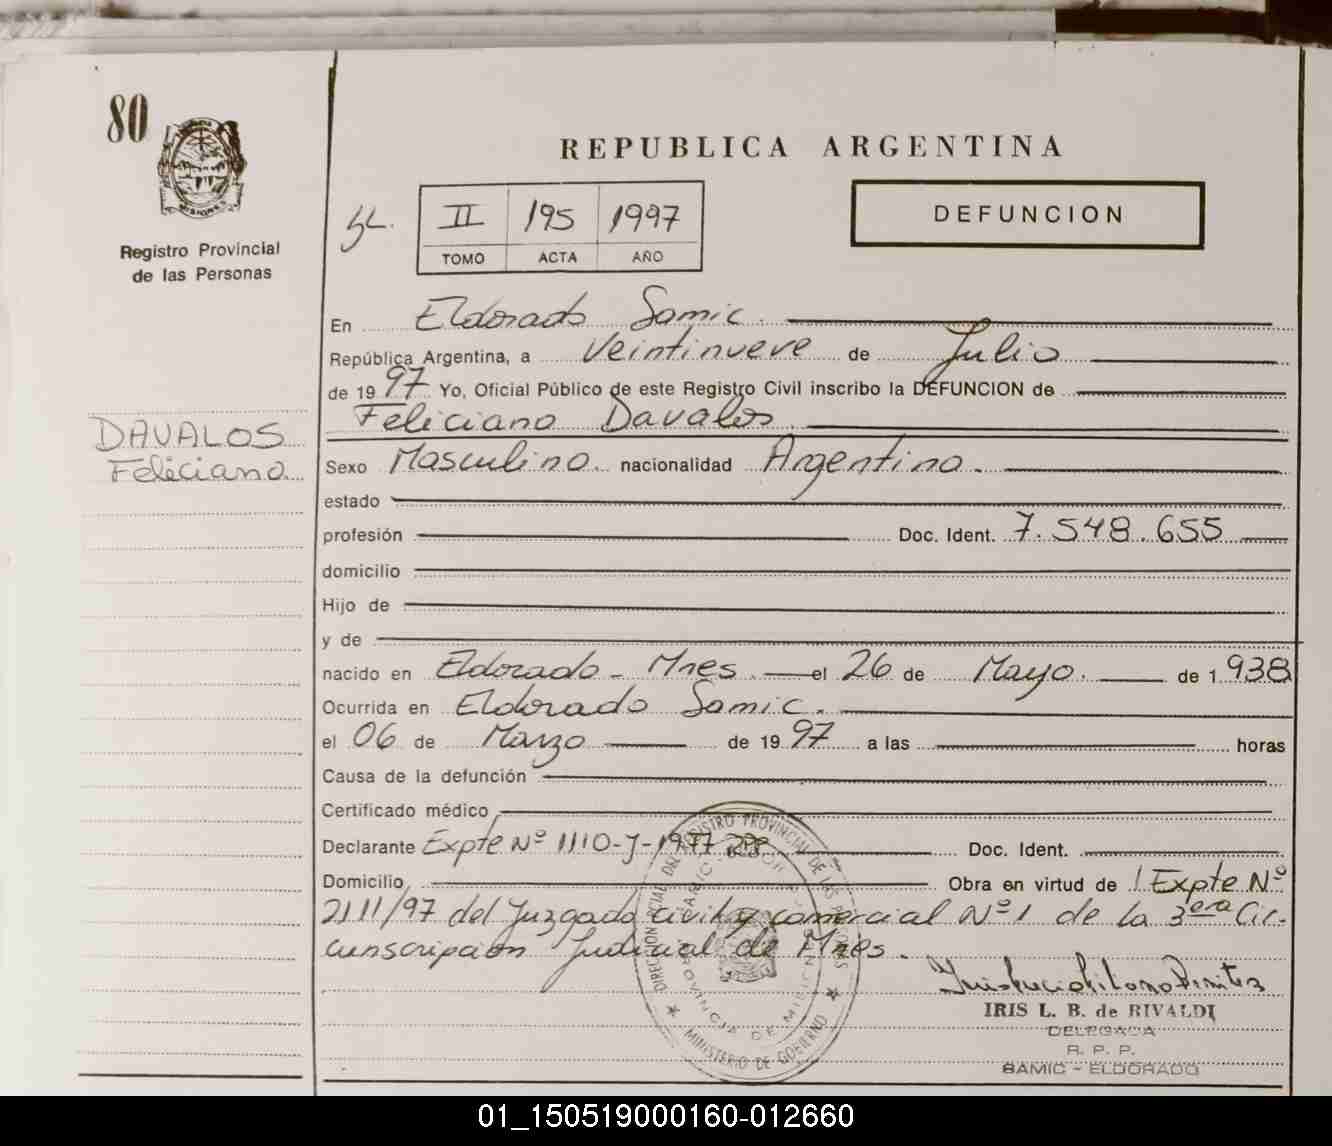 80
MISIONES
Registro Provincial
de las Personas
REPUBLICA ARGENTINA
II 195 1997
TOMO ACTA AÑO
DEFUNCION
En Eldorado Samic.
República Argentina, a Veintinueve de Julio
de 1997 Yo, Oficial Público de este Registro Civil inscribo la DEFUNCION de
Feliciano Davalos.
DAVALOS
Feliciano
Sexo Masculino. nacionalidad Argentino.
estado
profesión Doc. Ident. 7.548.655
domicilio
Hijo de
y de
nacido en Eldorado - Mnes. el 26 de Mayo. de 1938
Ocurrida en Eldorado Samic.
el 06 de Marzo de 1997 a las horas
Causa de la defunción
Certificado médico
Declarante Expte Nº 1110-J-1997 Doc. Ident.
Domicilio Obra en virtud de Expte Nº
2111/97 del Juzgado civil y comercial Nº 1 de la 3era Cir-
cunscripción Judicial de Mnes.
DIRECCION REGISTRO PROVINCIAL DE LAS PERSONAS
PROVINCIA DE MISIONES
MINISTERIO DE GOBIERNO
IRIS L. B. de RIVALDI
DELEGADA
R. P. P.
SAMIC - ELDORADO
01_150519000160-012660